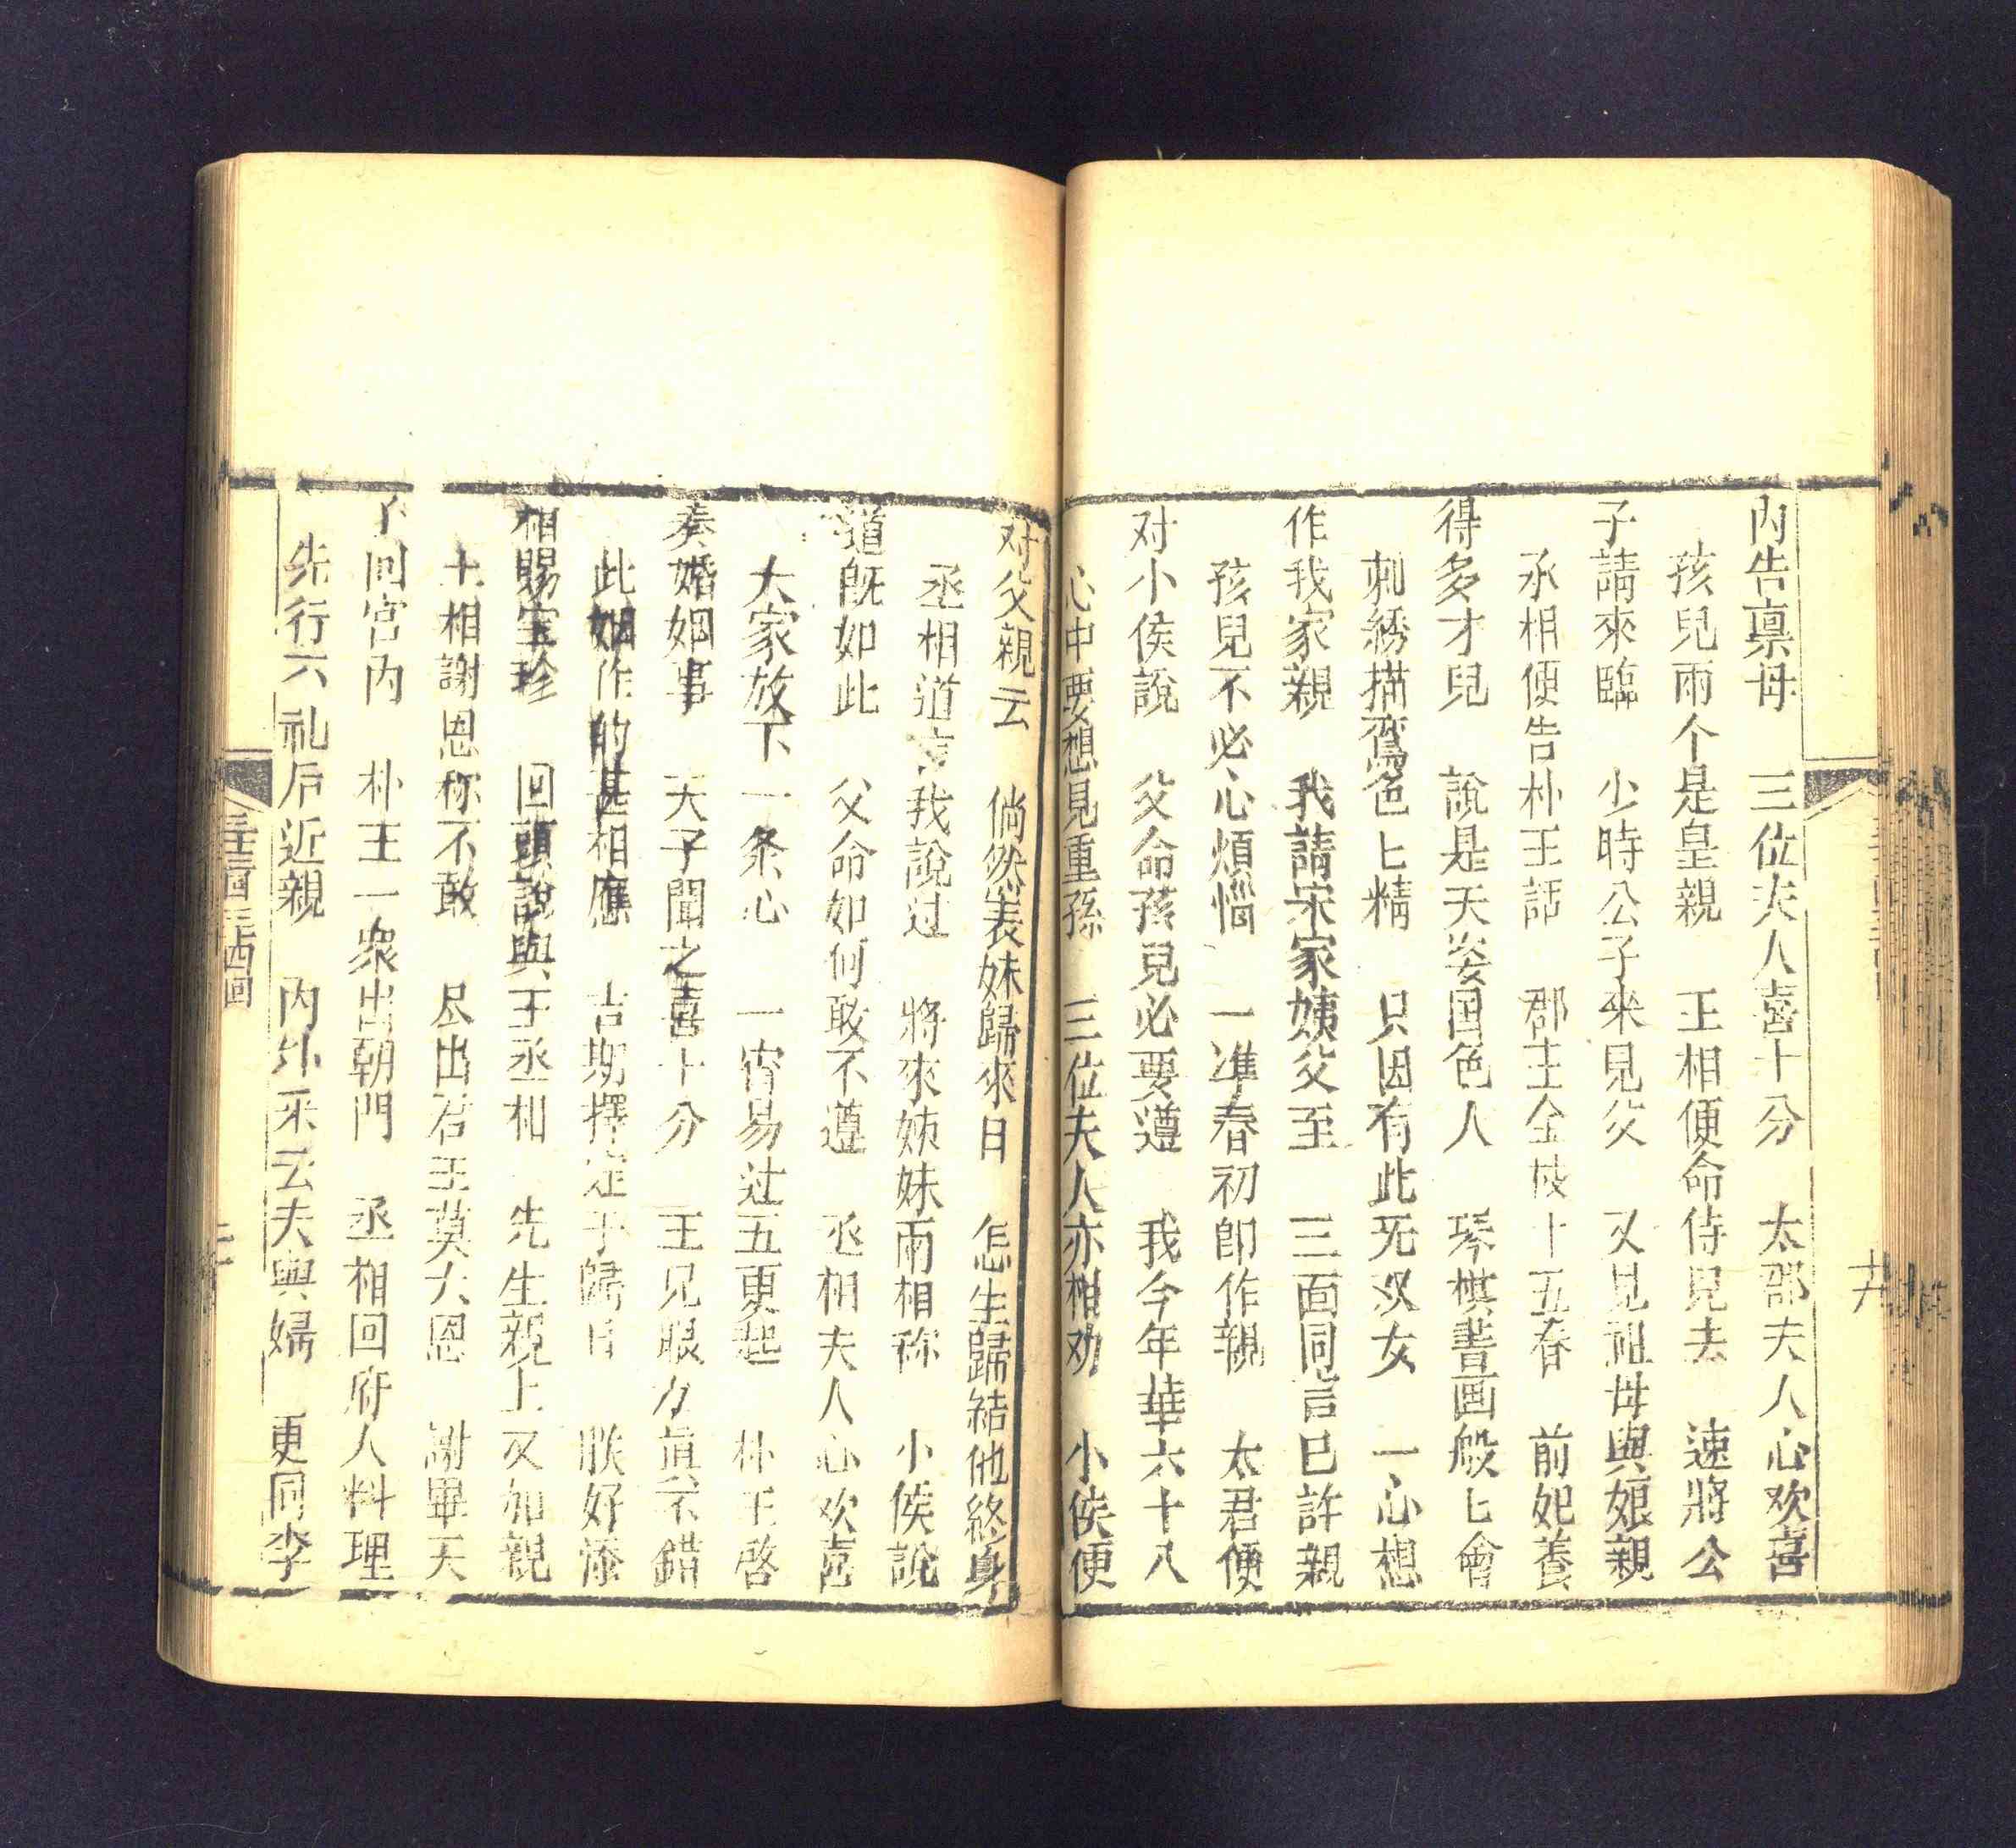 內告禀母　三位夫人喜十分　太郡夫人心欢喜
孩兒雨个是皇親　王相便命侍兒去　速將公
子請來臨　少時公子來見父　又見祖母與娘親
承相便告朴王話　郡主金枝十五春　前妃養
得多才皃　說是天姿国色人　琴棋書画般匕會
刺綉描鸞色匕精　只因有此无双女　一心想
作我家親　我請宋家姨父至　三面同言已許親
孩兒不必心煩惱　一準春初卽作親　太君便
对小侯說　父命孩兒必要遵　我今年華六十八
心中要想見重孫　三位夫人亦相劝　小侯便
对父親云　倘然表妹歸來日　怎生歸結他終身
丞相道言我說过　將來姊妹雨相称　小侯說
道旣如此　父命如何敢不遵　丞相夫人心欢喜
大家放下一条心　一宵易过五更起　朴王啓
奏婚姻事　天子聞之喜十分　王兄眼力眞不錯
此姻作的甚相應　吉期擇定于歸日　朕好添
相賜宝珍　回頭說與王丞相　先生親上又加親
王相謝恩称不敢　尽出君王莫大恩　謝畢天
子回宮內　朴王一衆出朝門　丞相回府人料理
先行六礼后近親　內外采云夫與婦　更同李